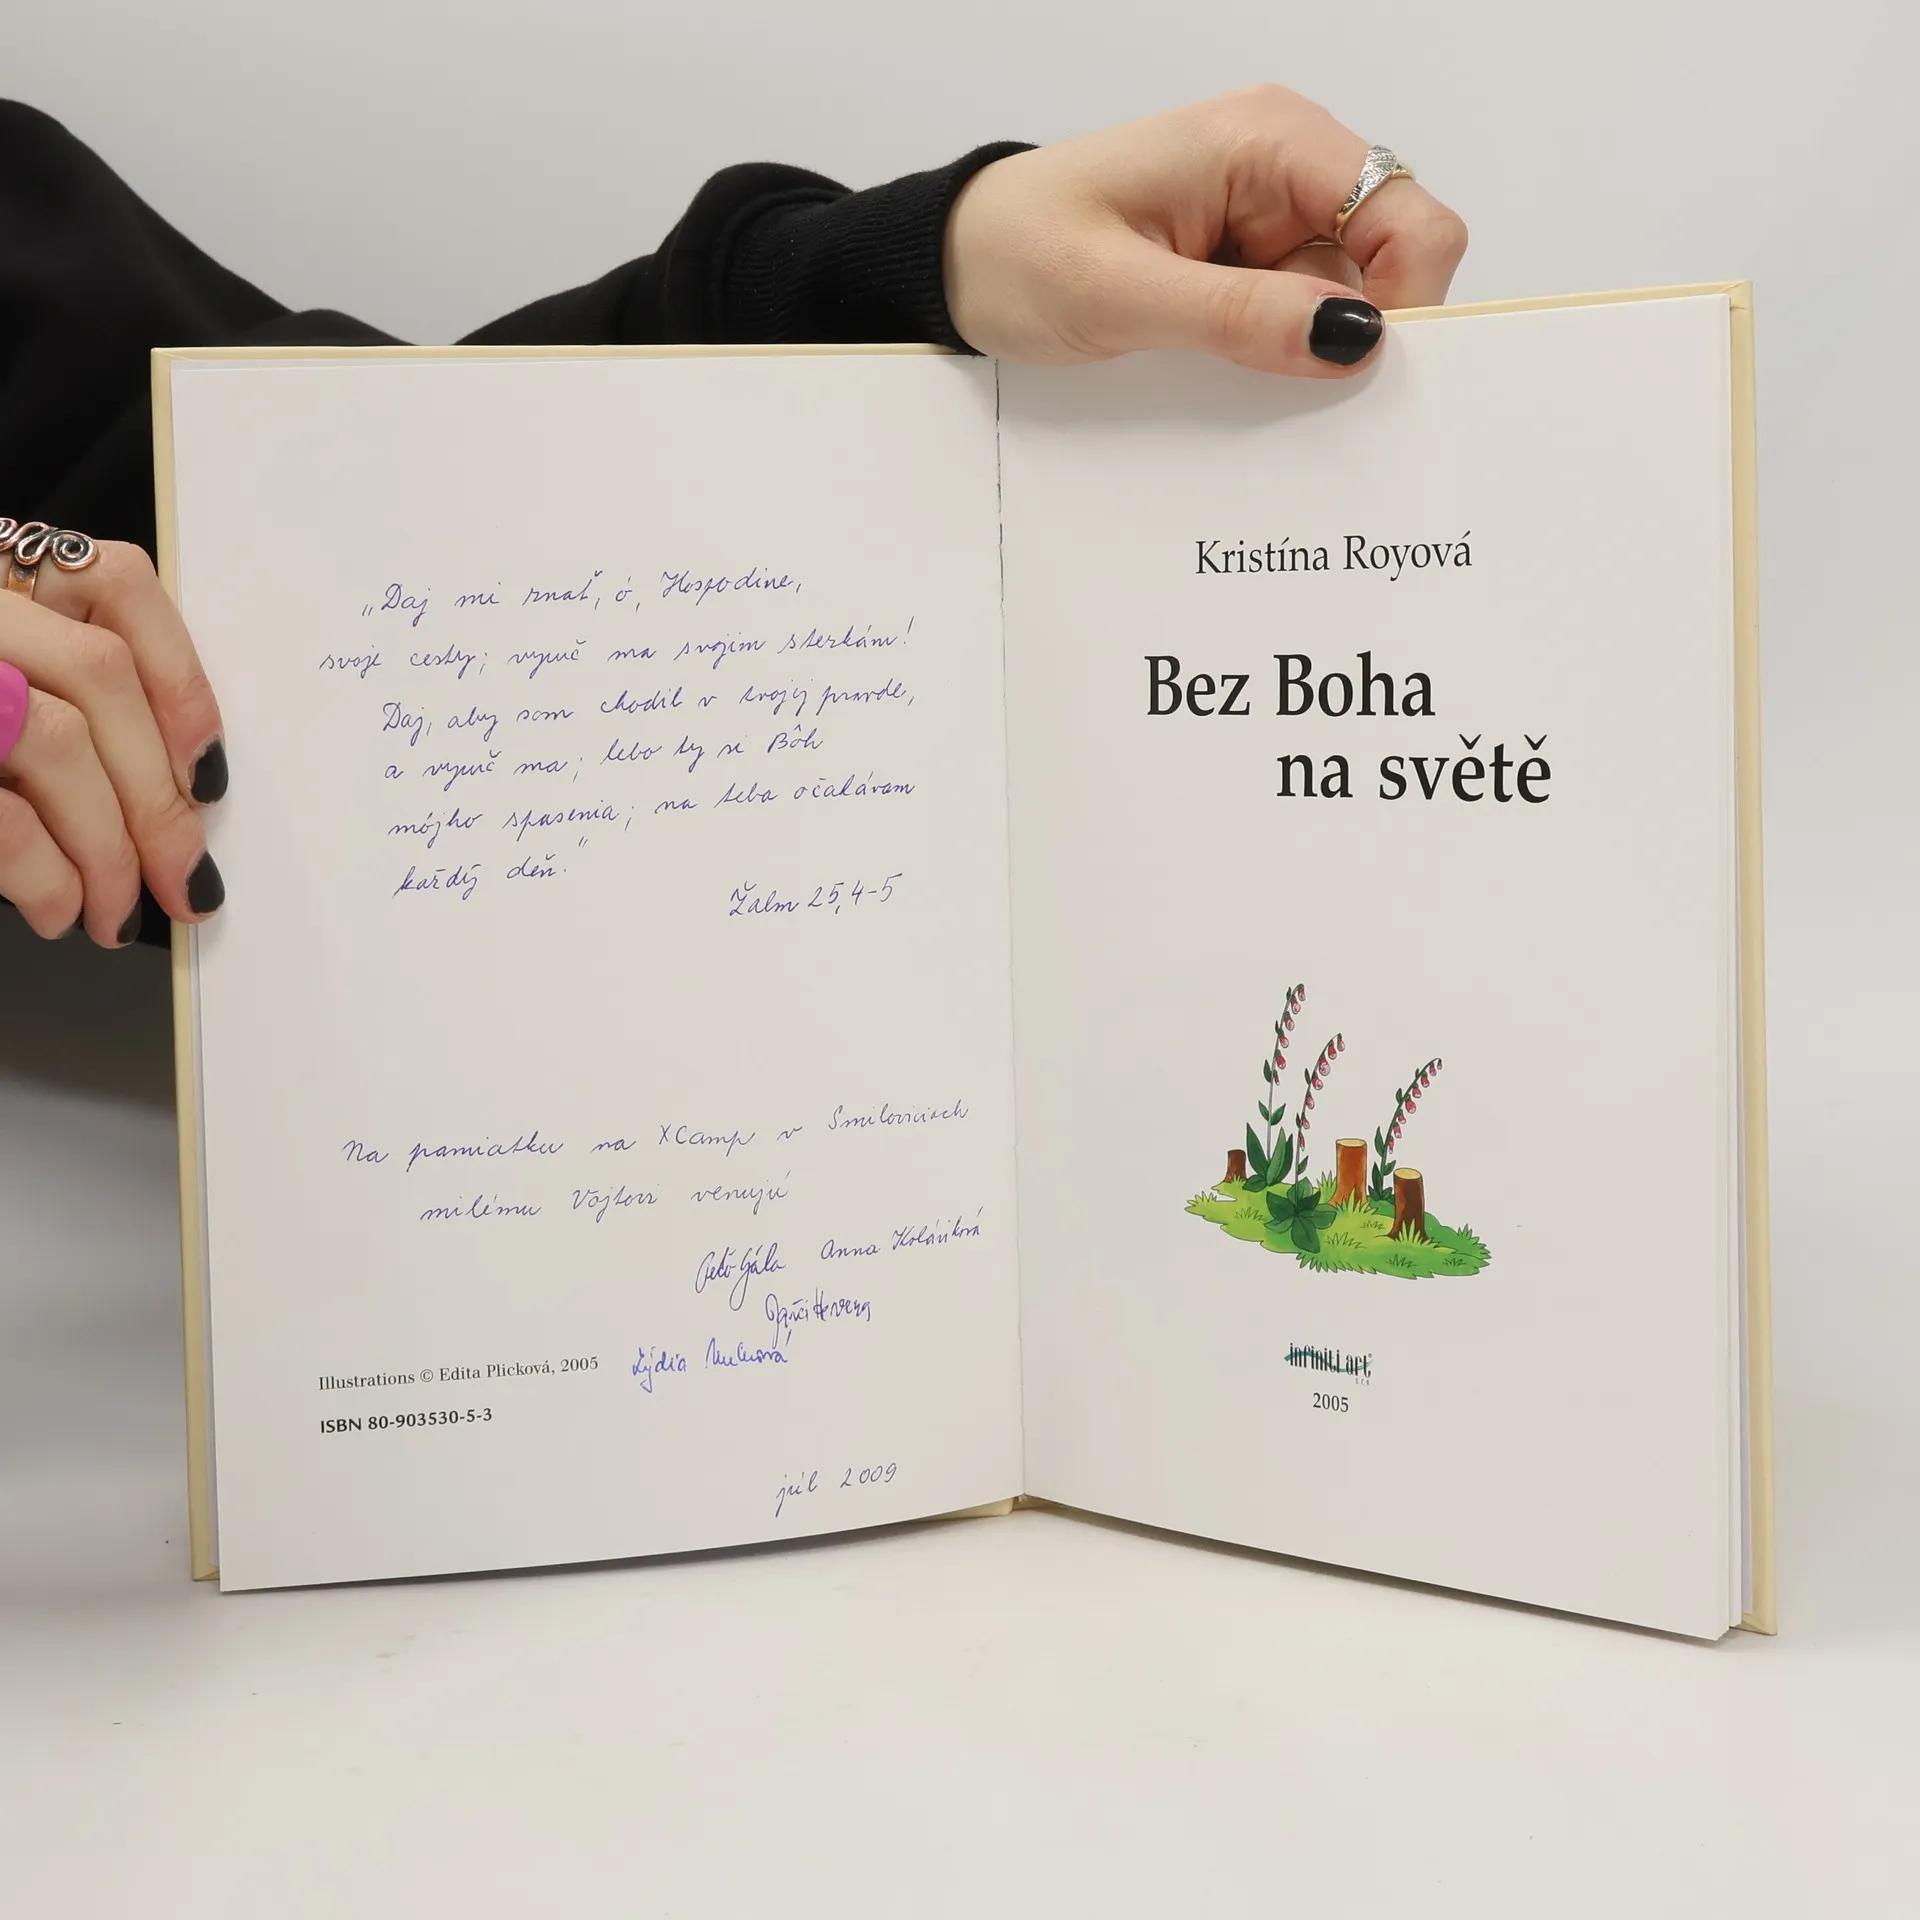 „Daj mi znať, ó, Hospodine,
svoje cesty; vyuč ma svojim stezkám!
Daj, aby som chodil v tvojej pravde,
a vyuč ma; lebo ty si Bôh
môjho spasenia; na teba očakávam
každý deň."
Žalm 25,4-5
Na pamiatku na XCamp v Smiloviciach
milému Vojtovi venujú
Peťo Gála Anna Kolániková
Lýdia
Illustrations © Edita Plicková, 2005
ISBN 80-903530-5-3
júl 2009
Kristína Royová
Bez Boha
na světě
infiniti art
s.r.o.
2005